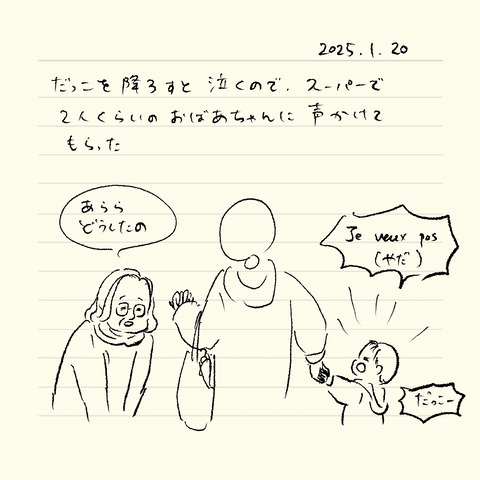 2025.1.20
だっこを降ろすと泣くので、スーパーで
2人くらいのおばあちゃんに声かけて
もらった
あらら
どうしたの
Je veux pas
(やだ)
だっこー